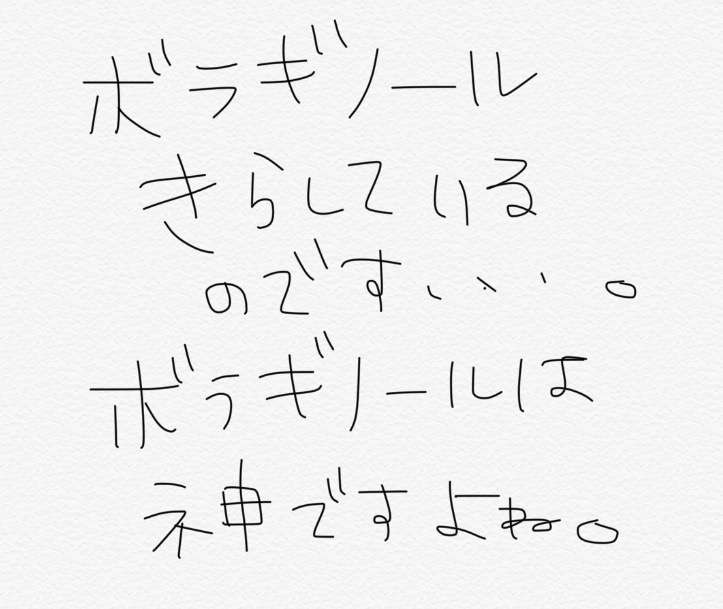 ボラギノール
きらしている
のです、、、。
ボラギノールは
神ですよね。